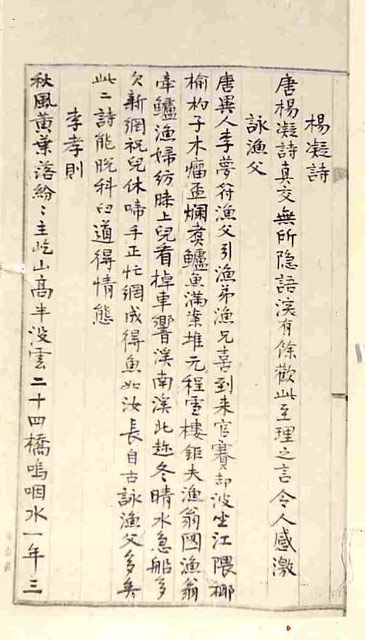 楊凝詩
唐楊凝詩真交無所隱語深有餘歡此至理之言令人感激
詠漁父
唐異人李夢符漁父引漁弟漁兄喜到來官賽却波坐江隈椰
榆杓子木瘤盃爛煑鱸魚滿案堆元程雪樓鉅夫漁翁圖漁翁
牽鱸漁婦紡膝上兒看棹車響溪南溪北趂冬晴水急船多
欠新網祝兒休啼手正忙網成得魚如汝長自古詠漁父多矣
此二詩能脫科臼道得情態
李孝則
秋風黄葉落紛〻主屹山高半沒雲二十四橋嗚咽水一年三